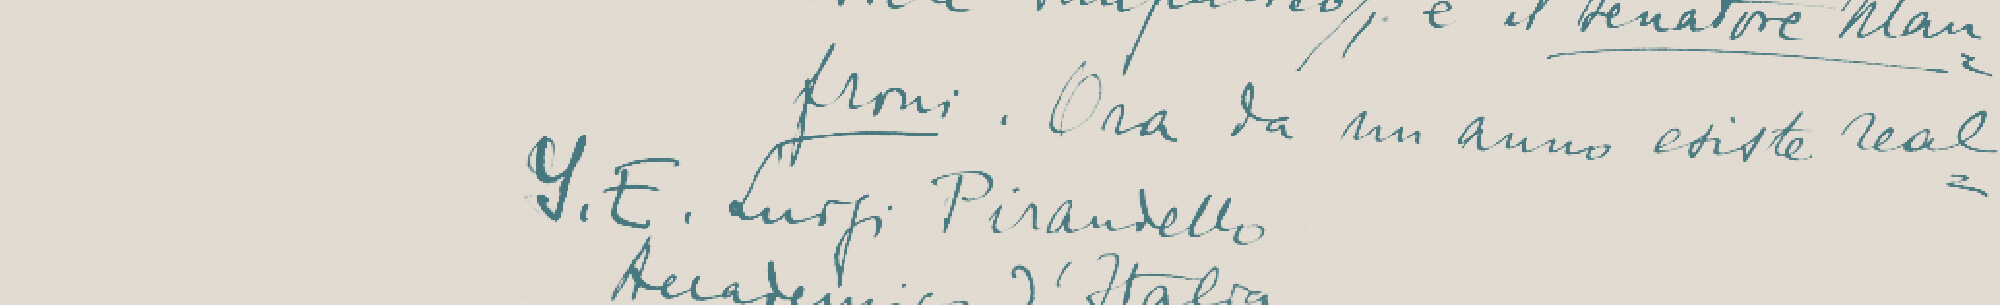 e il senatore Man=
froni. Ora da un anno esiste real=
S. E. Luigi Pirandello
Accademico d'Italia